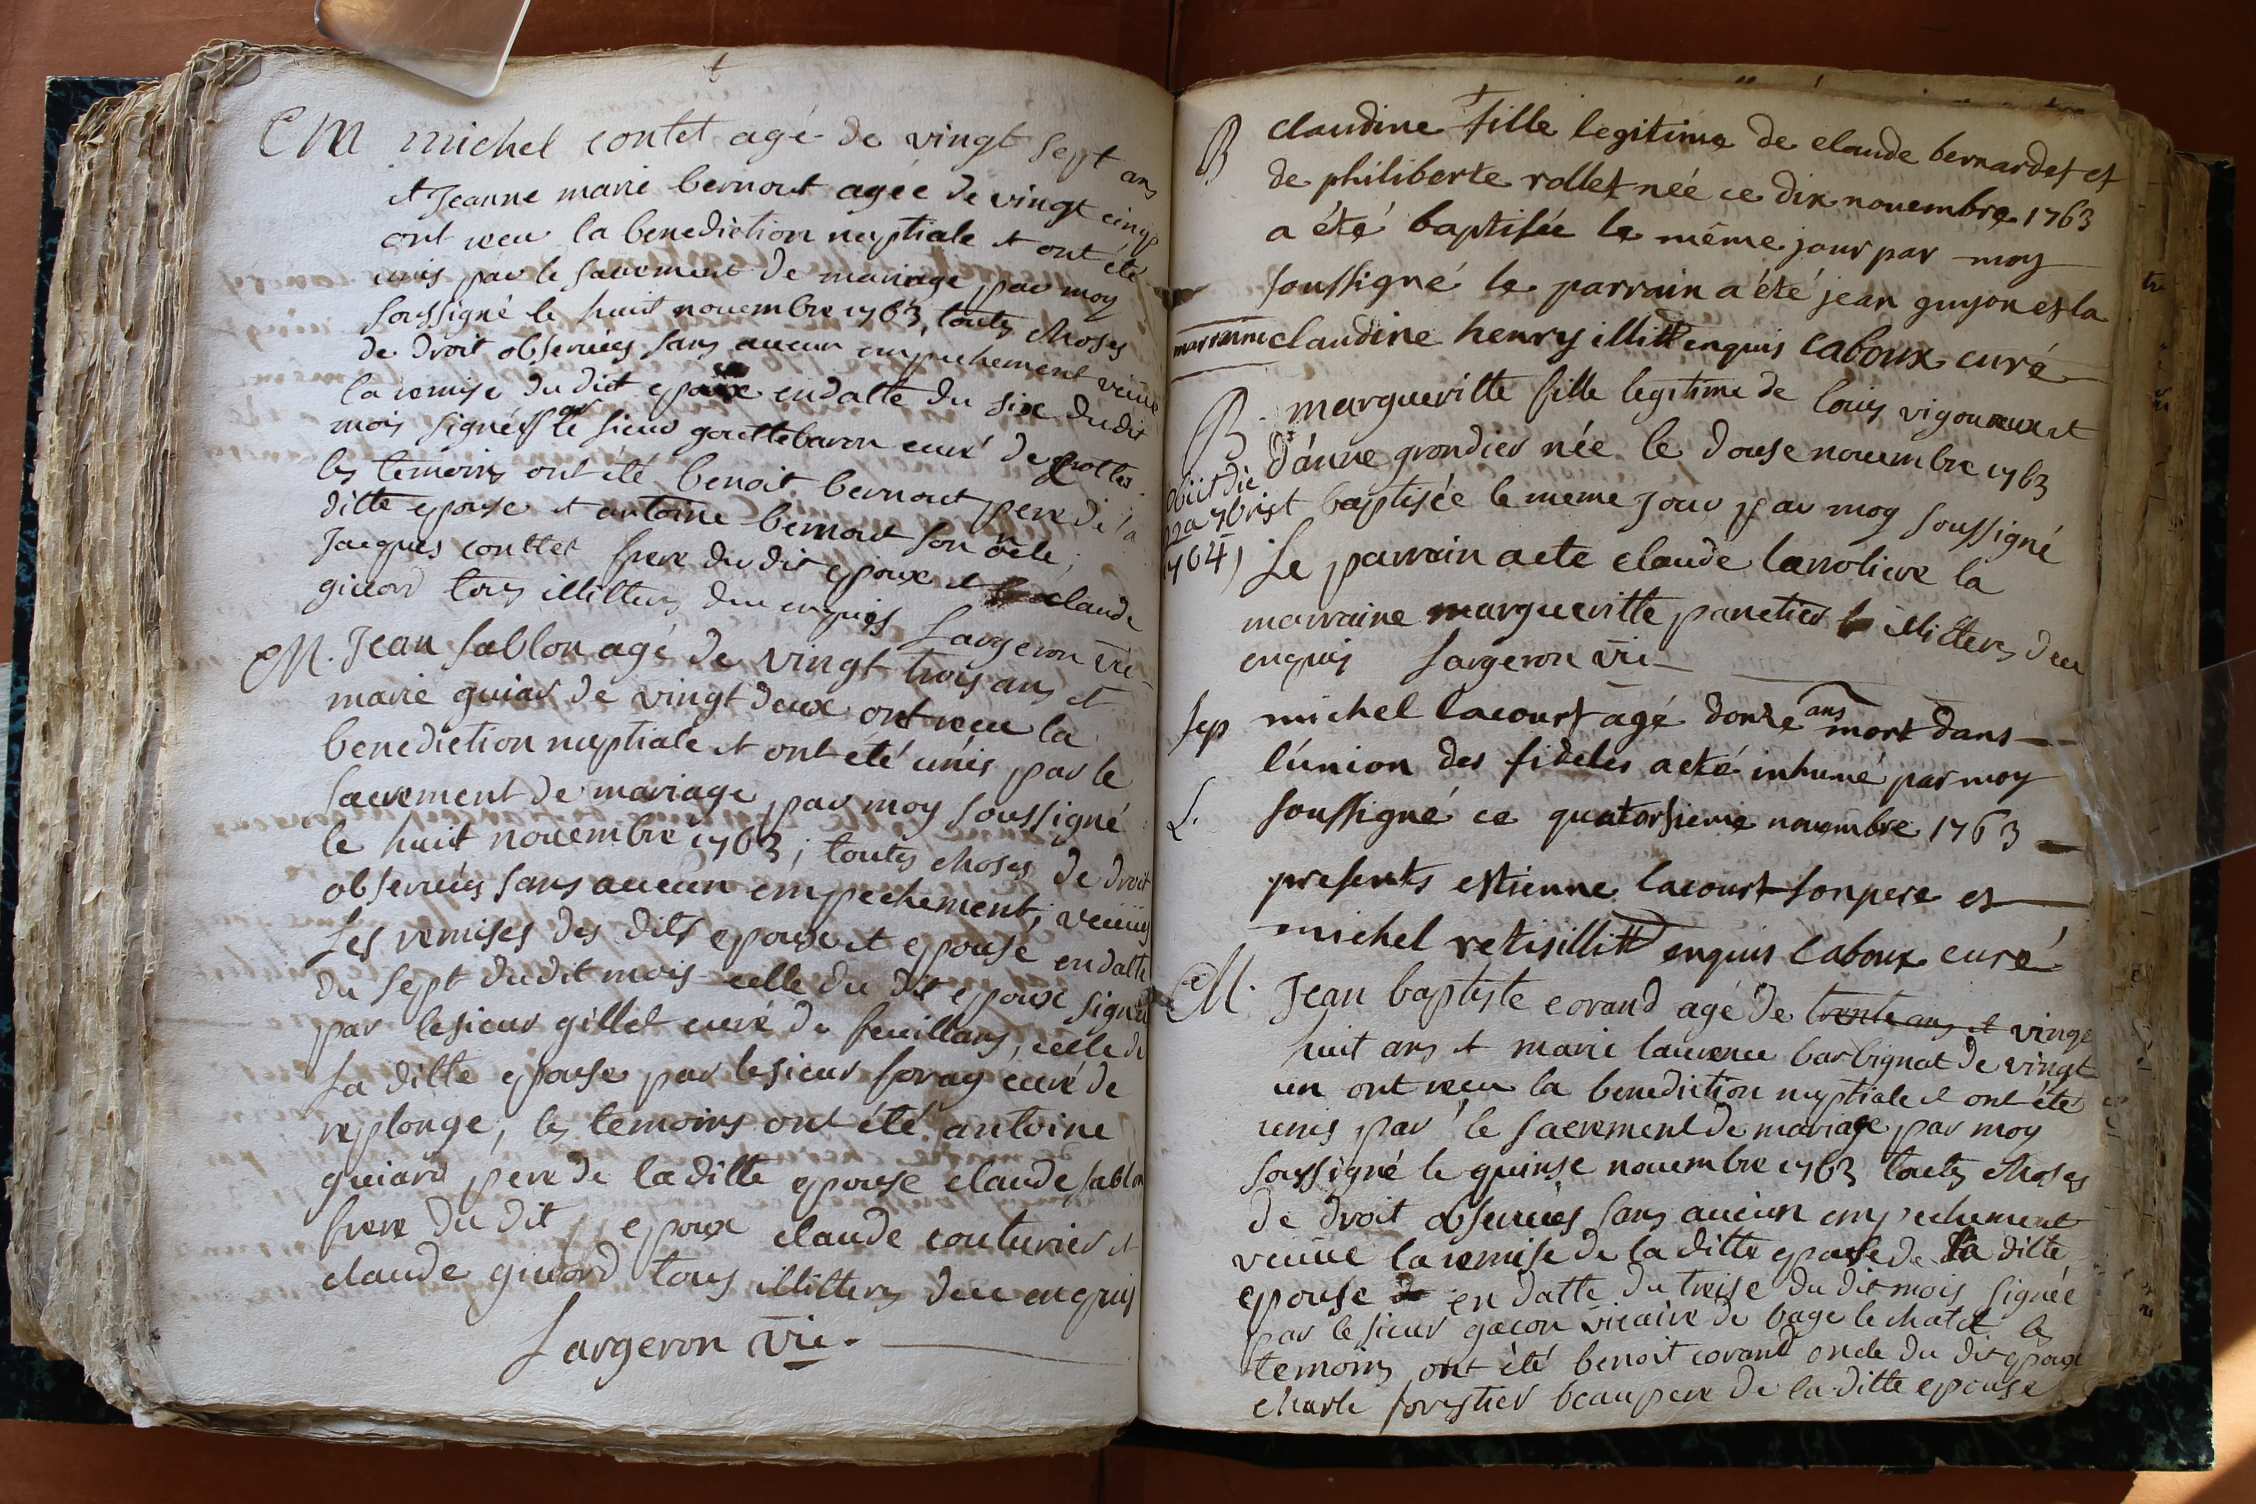 M michel contet agé de vingt sept ans
et Jeanne marie bernout agée de vingt cinq
ont receu la benediction nuptiale et ont été
unis par le sacrement de mariage par moy
soussigné le huit novembre 1763, toutes choses
de droit observées sans aucun empechement veüe
la remise du dit epoux en datte du six du dit
mois signée par le sieur gouttebaron curé de
les temoins ont été benoit bernout pere de la
ditte epouse et antoine bernout son oncle,
Jacques conttet frere du dit epoux et claude
giuord tous illitters deu enquis Sargeron vic
M. Jean sablon agé de vingt trois ans et
marie guiar de vingt deux ont receu la
benediction nuptiale et ont été unis par le
sacrement de mariage par moy soussigné
le huit novembre 1763; toutes choses de droit
observées sans aucun empechement; veües
les remises des dits epoux et epouse en datte
du sept dudit mois celle du dit epoux signée
par le sieur gillet curé de feuillans, celle de
la ditte epouse par le sieur foray curé de
replonge; les temoins ont été antoine
guiard pere de la ditte epouse claude sablon
frere du dit epoux claude couturier et
claude giuord tous illitters deu enquis
Sargeron vic.
B claudine fille legitime de claude bernardet et
de philiberte rollet neé ce dix novembre 1763
a été baptisée le même jour par moy
soussigné le parrain a été jean guyon et la
marrainne claudine henry illitt enquis caboux curé
B. margueritte fille legitime de louis vigoureux et
d'anne grondier née le douse novembre 1763
obiit die
22a 7bris
1764)
et baptisée le meme jour par moy soussigné
Le parrain a eté claude larroliere la
marraine margueritte panetier illitters deu
enquis Sargeron vic
sep michel lacourt agé donze ans mort dans
l'union des fideles a eté inhumé par moy
S. soussigné ce quatorsieme novembre 1763
presents estienne lacourt son pere et
michel retis illitt enquis caboux curé
M. Jean baptiste corand agé de trente ans et vingt
huit ans et marie laurence barbignat de vingt
un ont receu la benediction nuptiale et ont été
unis par le sacrement de mariage par moy
soussigné le quinse novembre 1763 toutes choses
de droit observées sans aucun empechement
veüe la remise de la ditte epouse de la ditte
epouse en datte du treise du dit mois signée
par le sieur gacon vicaire de bage le chatel les
temoins ont été benoit corand oncle du dit epoux
charle forestier beaupere de la ditte epouse